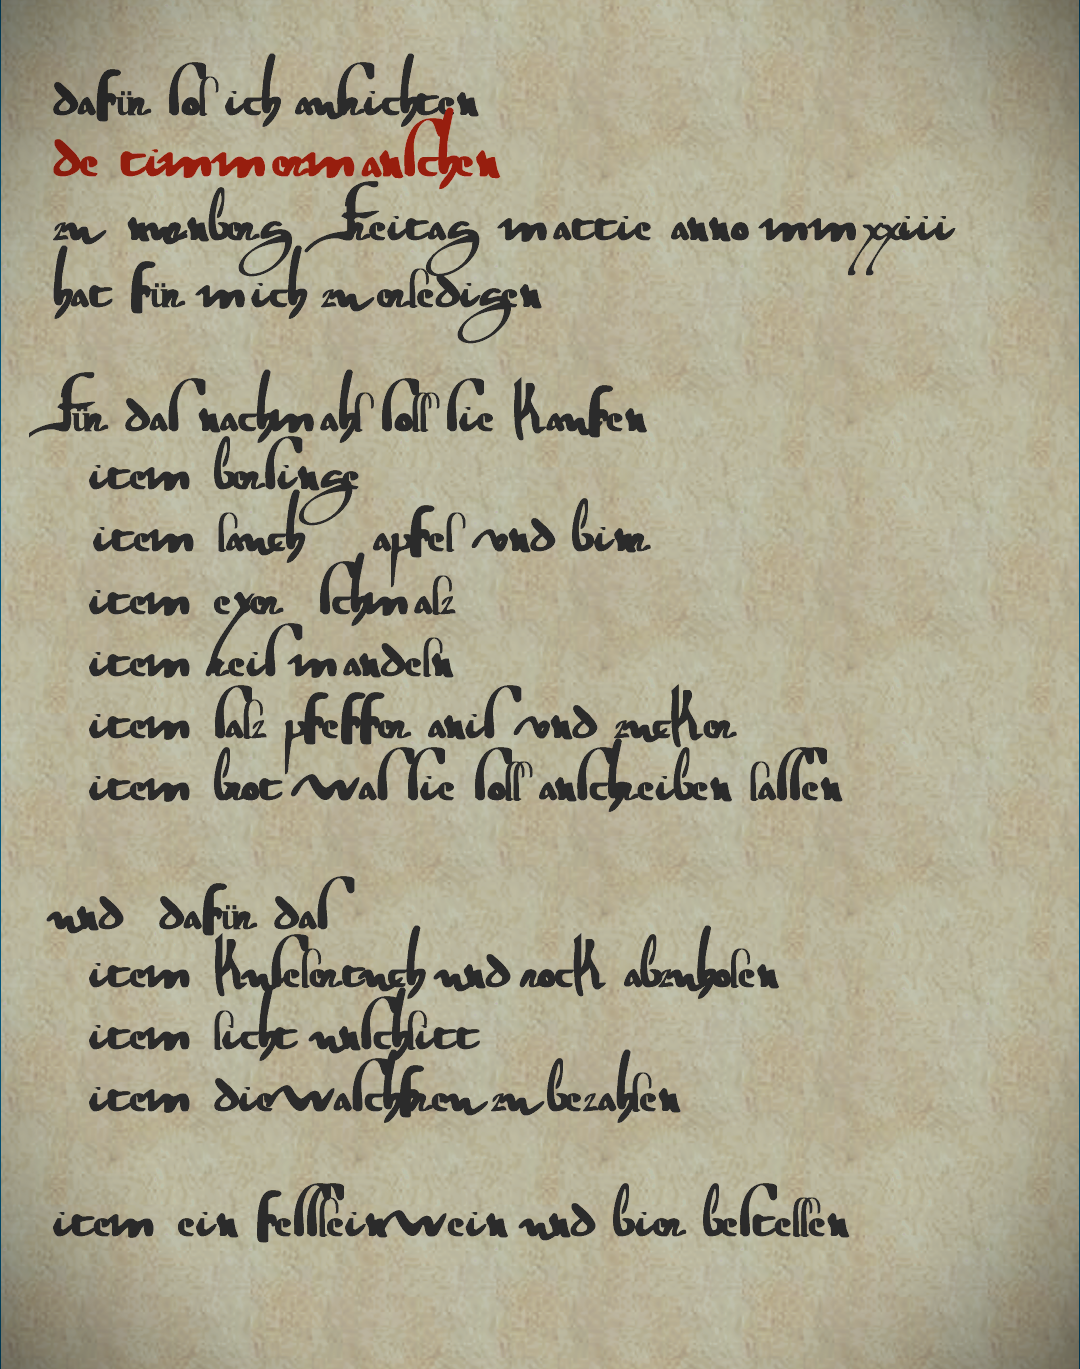 dafür sol ich anrichten
de timmermanschen
zu nurnberg Freitag mattie anno mmxxiii
hat für mich zu erledigen
Für das nachmahl soll sie kaufen
item bersinge
item lauch apfel vnd birn
item eyer schmalz
item reis mandeln
item salz pfeffer anis vnd zucker
item brot was sie soll anschreiben lassen
und dafür das
item kuselertuch und rock abzuholen
item licht unschlitt
item die waschfreu zu bezahlen
item ein fesslein wein und bier bestellen